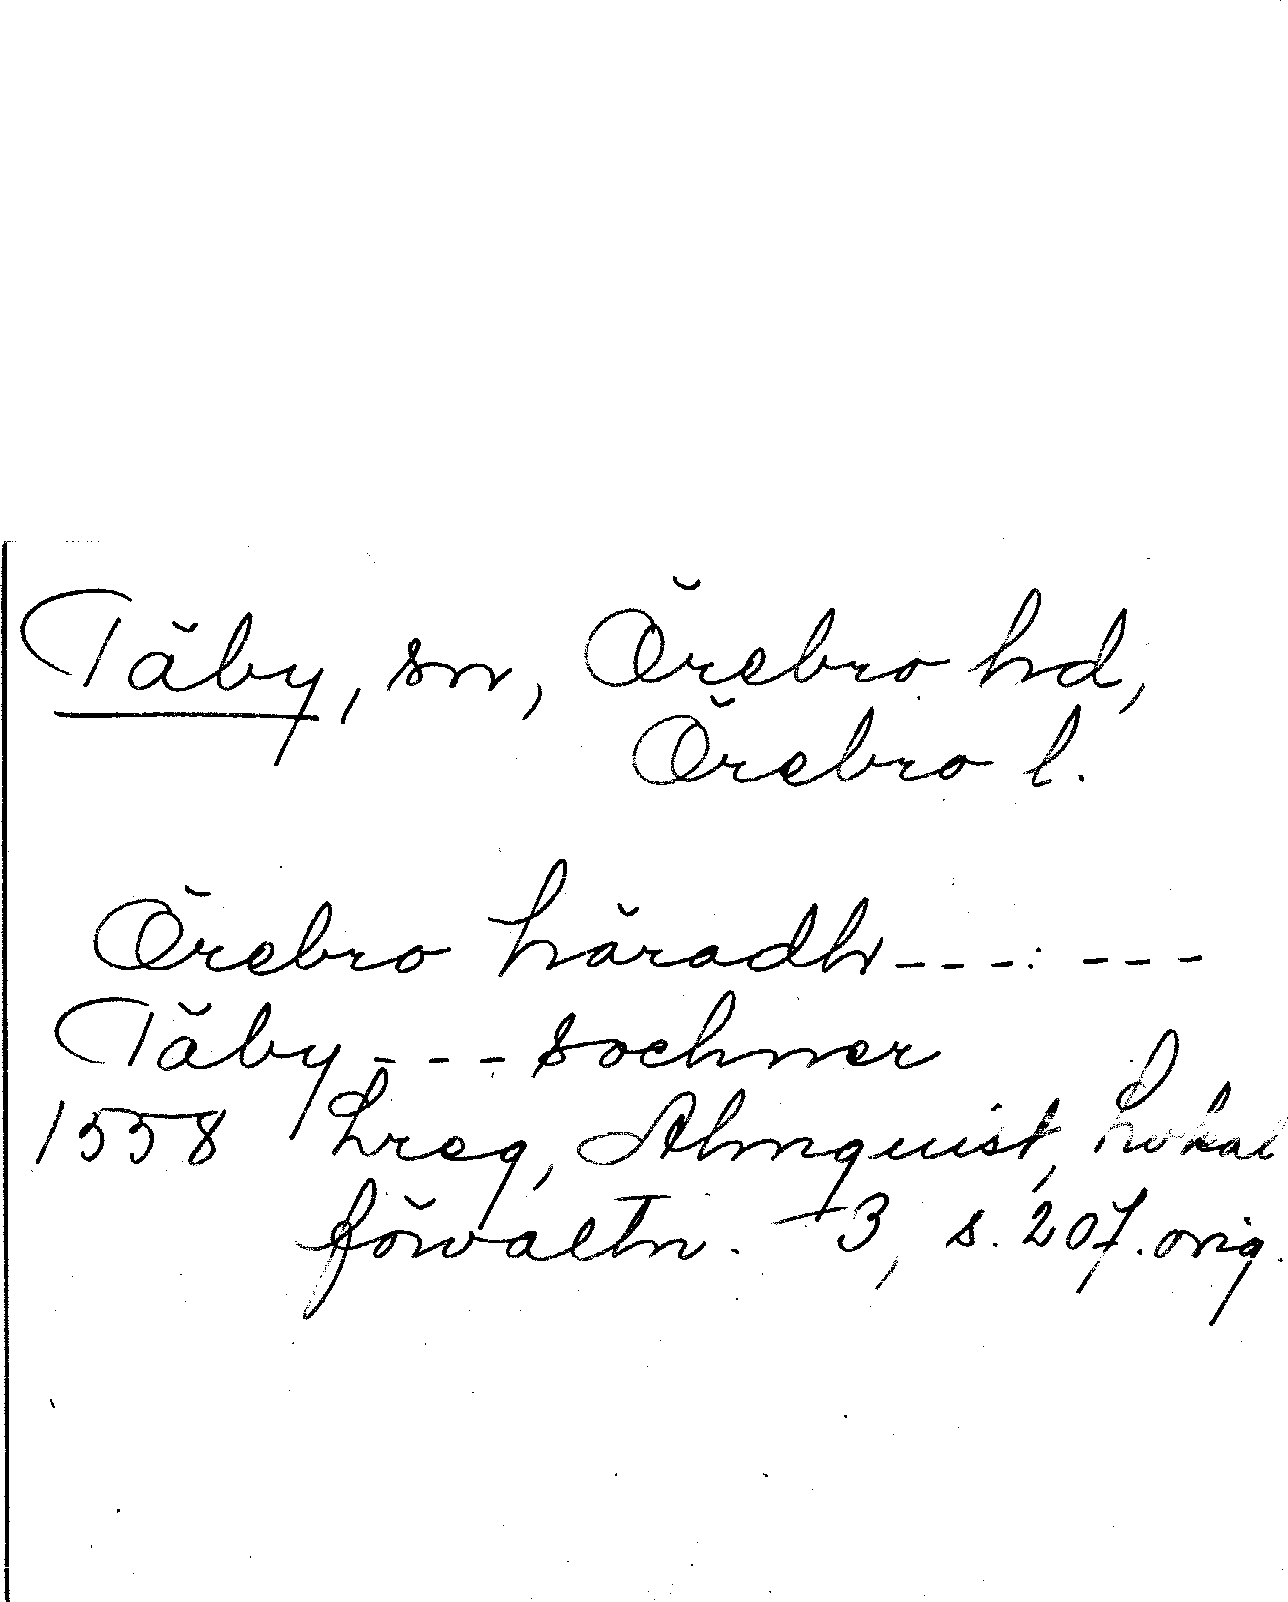 Täby, sn, Örebro hd,
Örebro l.
Örebro häradh --- ---
Täby --- sochner
1558 Lreg, Almquist, Lokal
förvaltn. 3, s. 207. orig.